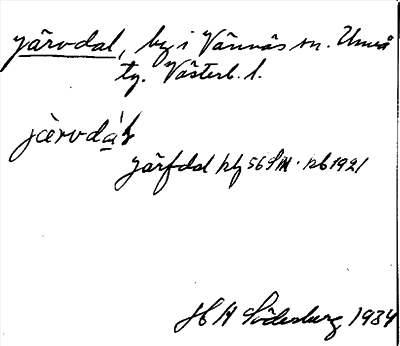 Järvdal, by i Vännäs sn. Umeå
tg. Västerb. l.
järvdál
Järfdal 56 SM. 1921
H A Söderberg 1934